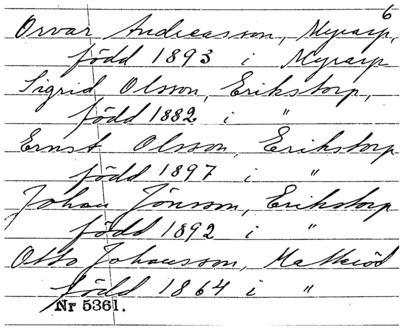 6
Orvar Andreasson, Myrarp,
född 1893 i Myrarp
Sigrid Olsson, Erikstorp,
född 1882 i "
Ernst Olsson, Erikstorp
född 1897 i "
Johan Jönsson, Erikstorp
född 1892 i "
Otto Johansson,
född 1864 i "
Nr 5361.